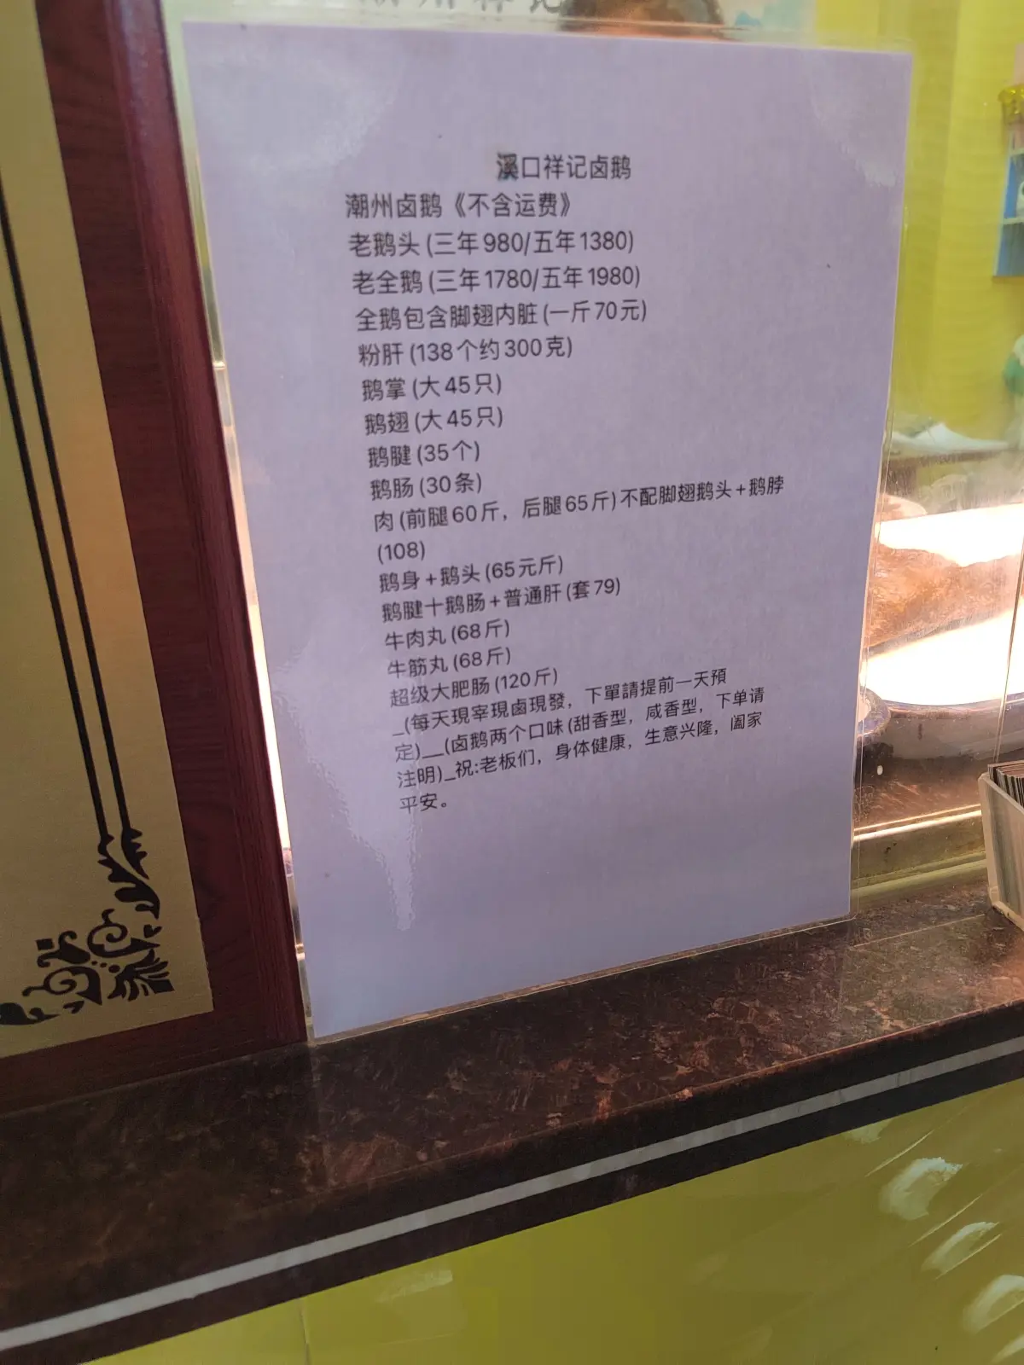 溪口祥记卤鹅
潮州卤鹅《不含运费》
老鹅头(三年980/五年1380)
老全鹅(三年1780/五年1980)
全鹅包含脚翅内脏(一斤70元)
粉肝(138个约300克)
鹅掌(大45只)
鹅翅(大45只)
鹅腱(35个)
鹅肠(30条)
肉(前腿60斤，后腿65斤)不配脚翅鹅头+鹅脖
(108)
鹅身+鹅头(65元斤)
鹅腱十鹅肠+普通肝(套79)
牛肉丸(68斤)
牛筋丸(68斤)
超级大肥肠(120斤)
_(每天現宰現鹵現發，下單請提前一天預
定)__(卤鹅两个口味(甜香型，咸香型，下单请
注明)_祝:老板们，身体健康，生意兴隆，阖家
平安。